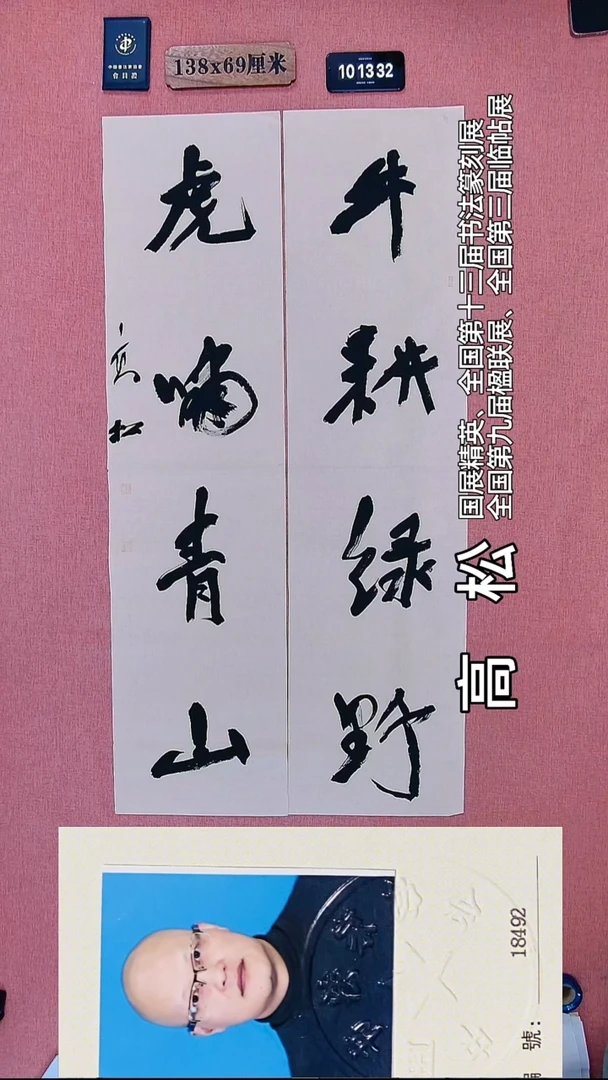 中国书法家协会
會員證
138x69厘米
10 13 32
牛耕绿野
虎啸青山
高松
国展精英、全国第十三届书法篆刻展
全国第九届楹联展、全国第三届临帖展
高 松
18492
編 號: